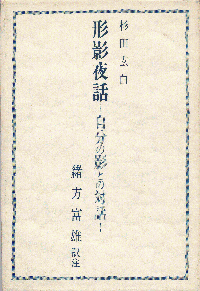 杉田玄白
形影夜話
―自分の影との対話―
緒方富雄 訳注